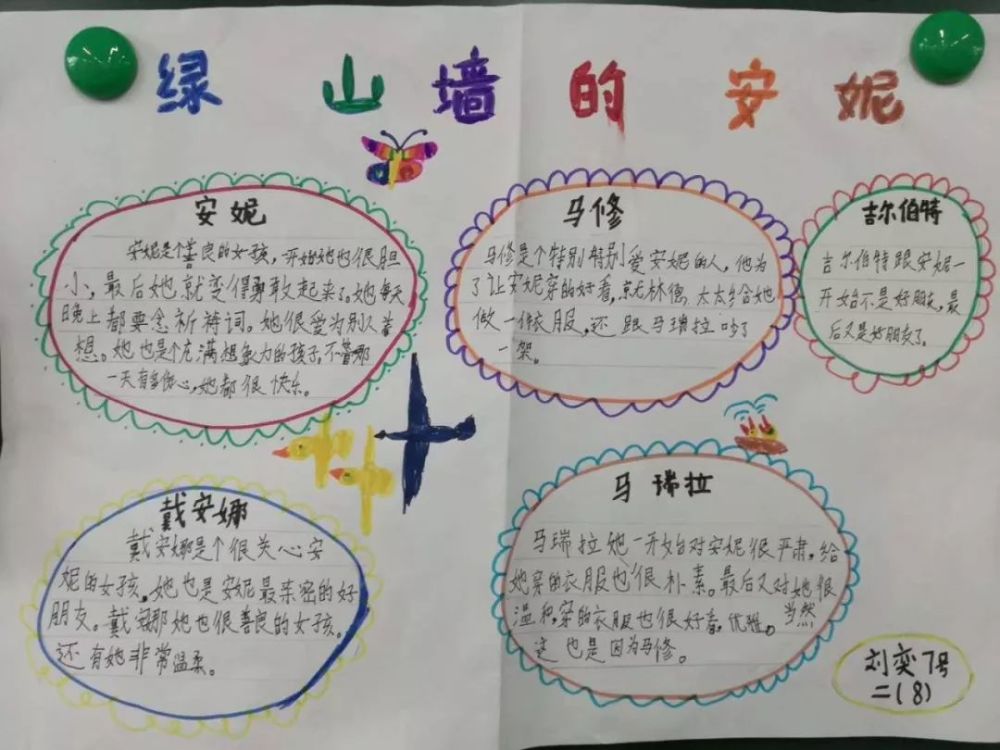 绿山墙的安妮
安妮
安妮是个善良的女孩，开始她也很胆
小，最后她就变得勇敢起来了。她每天
晚上都要念祈祷词。她很爱为别人着
想。她也是个充满想象力的孩子，不管那
一天有多伤心，她都很快乐。
马修
马修是个特别特别爱安妮的人，他为
了让安妮穿的好看，就林德太太给她
做一件衣服，还跟马瑞拉吵了
一架。
吉尔伯特
吉尔伯特跟安妮一
开始不是好朋友，最
后又是好朋友了。
戴安娜
戴安娜是个很关心安
妮的女孩，她也是安妮最亲密的好
朋友。戴安娜她也很善良的女孩。
还有她非常温柔。
马瑞拉
马瑞拉她一开始对安妮很严肃，给
她穿的衣服也很朴素。最后又对她很
温和，穿的衣服也很好看，优雅。当然
这也是因为马修。
刘奕7号
二(8)